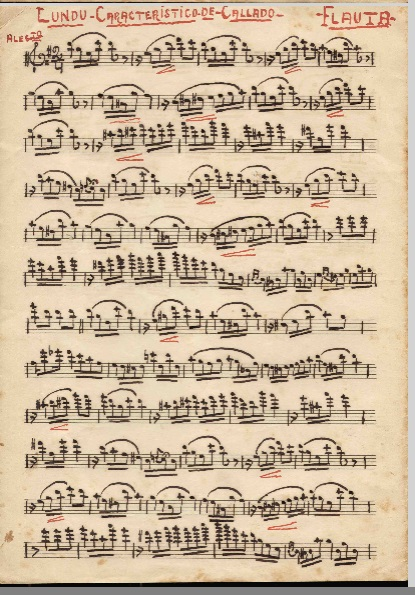 LUNDU-CARACTERÍSTICO-DE-CALLADO- -FLAUTA-
ALEGRO